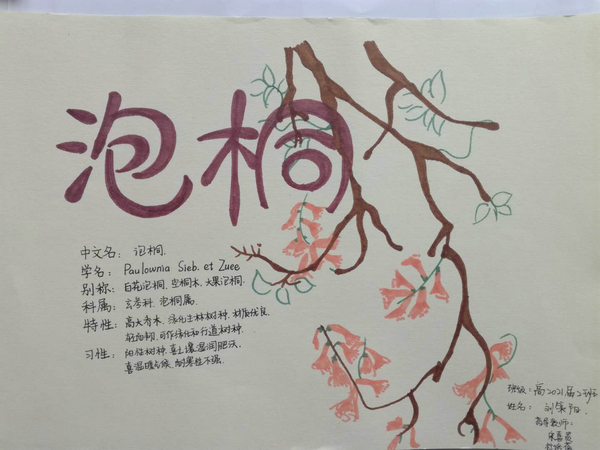 泡桐
中文名: 泡桐.
学名: Paulownia Sieb. et Zuee
别称: 白花泡桐. 空桐木. 大果泡桐.
科属: 玄参科. 泡桐属.
特性: 高大乔木. 绿化主林树种. 材质优良.
可作绿化和行道树种.
习性: 阳性树种. 喜土壤湿润肥沃.
喜温暖气候, 耐寒性不强.
班级: 高2021届2班
姓名:
指导教师: